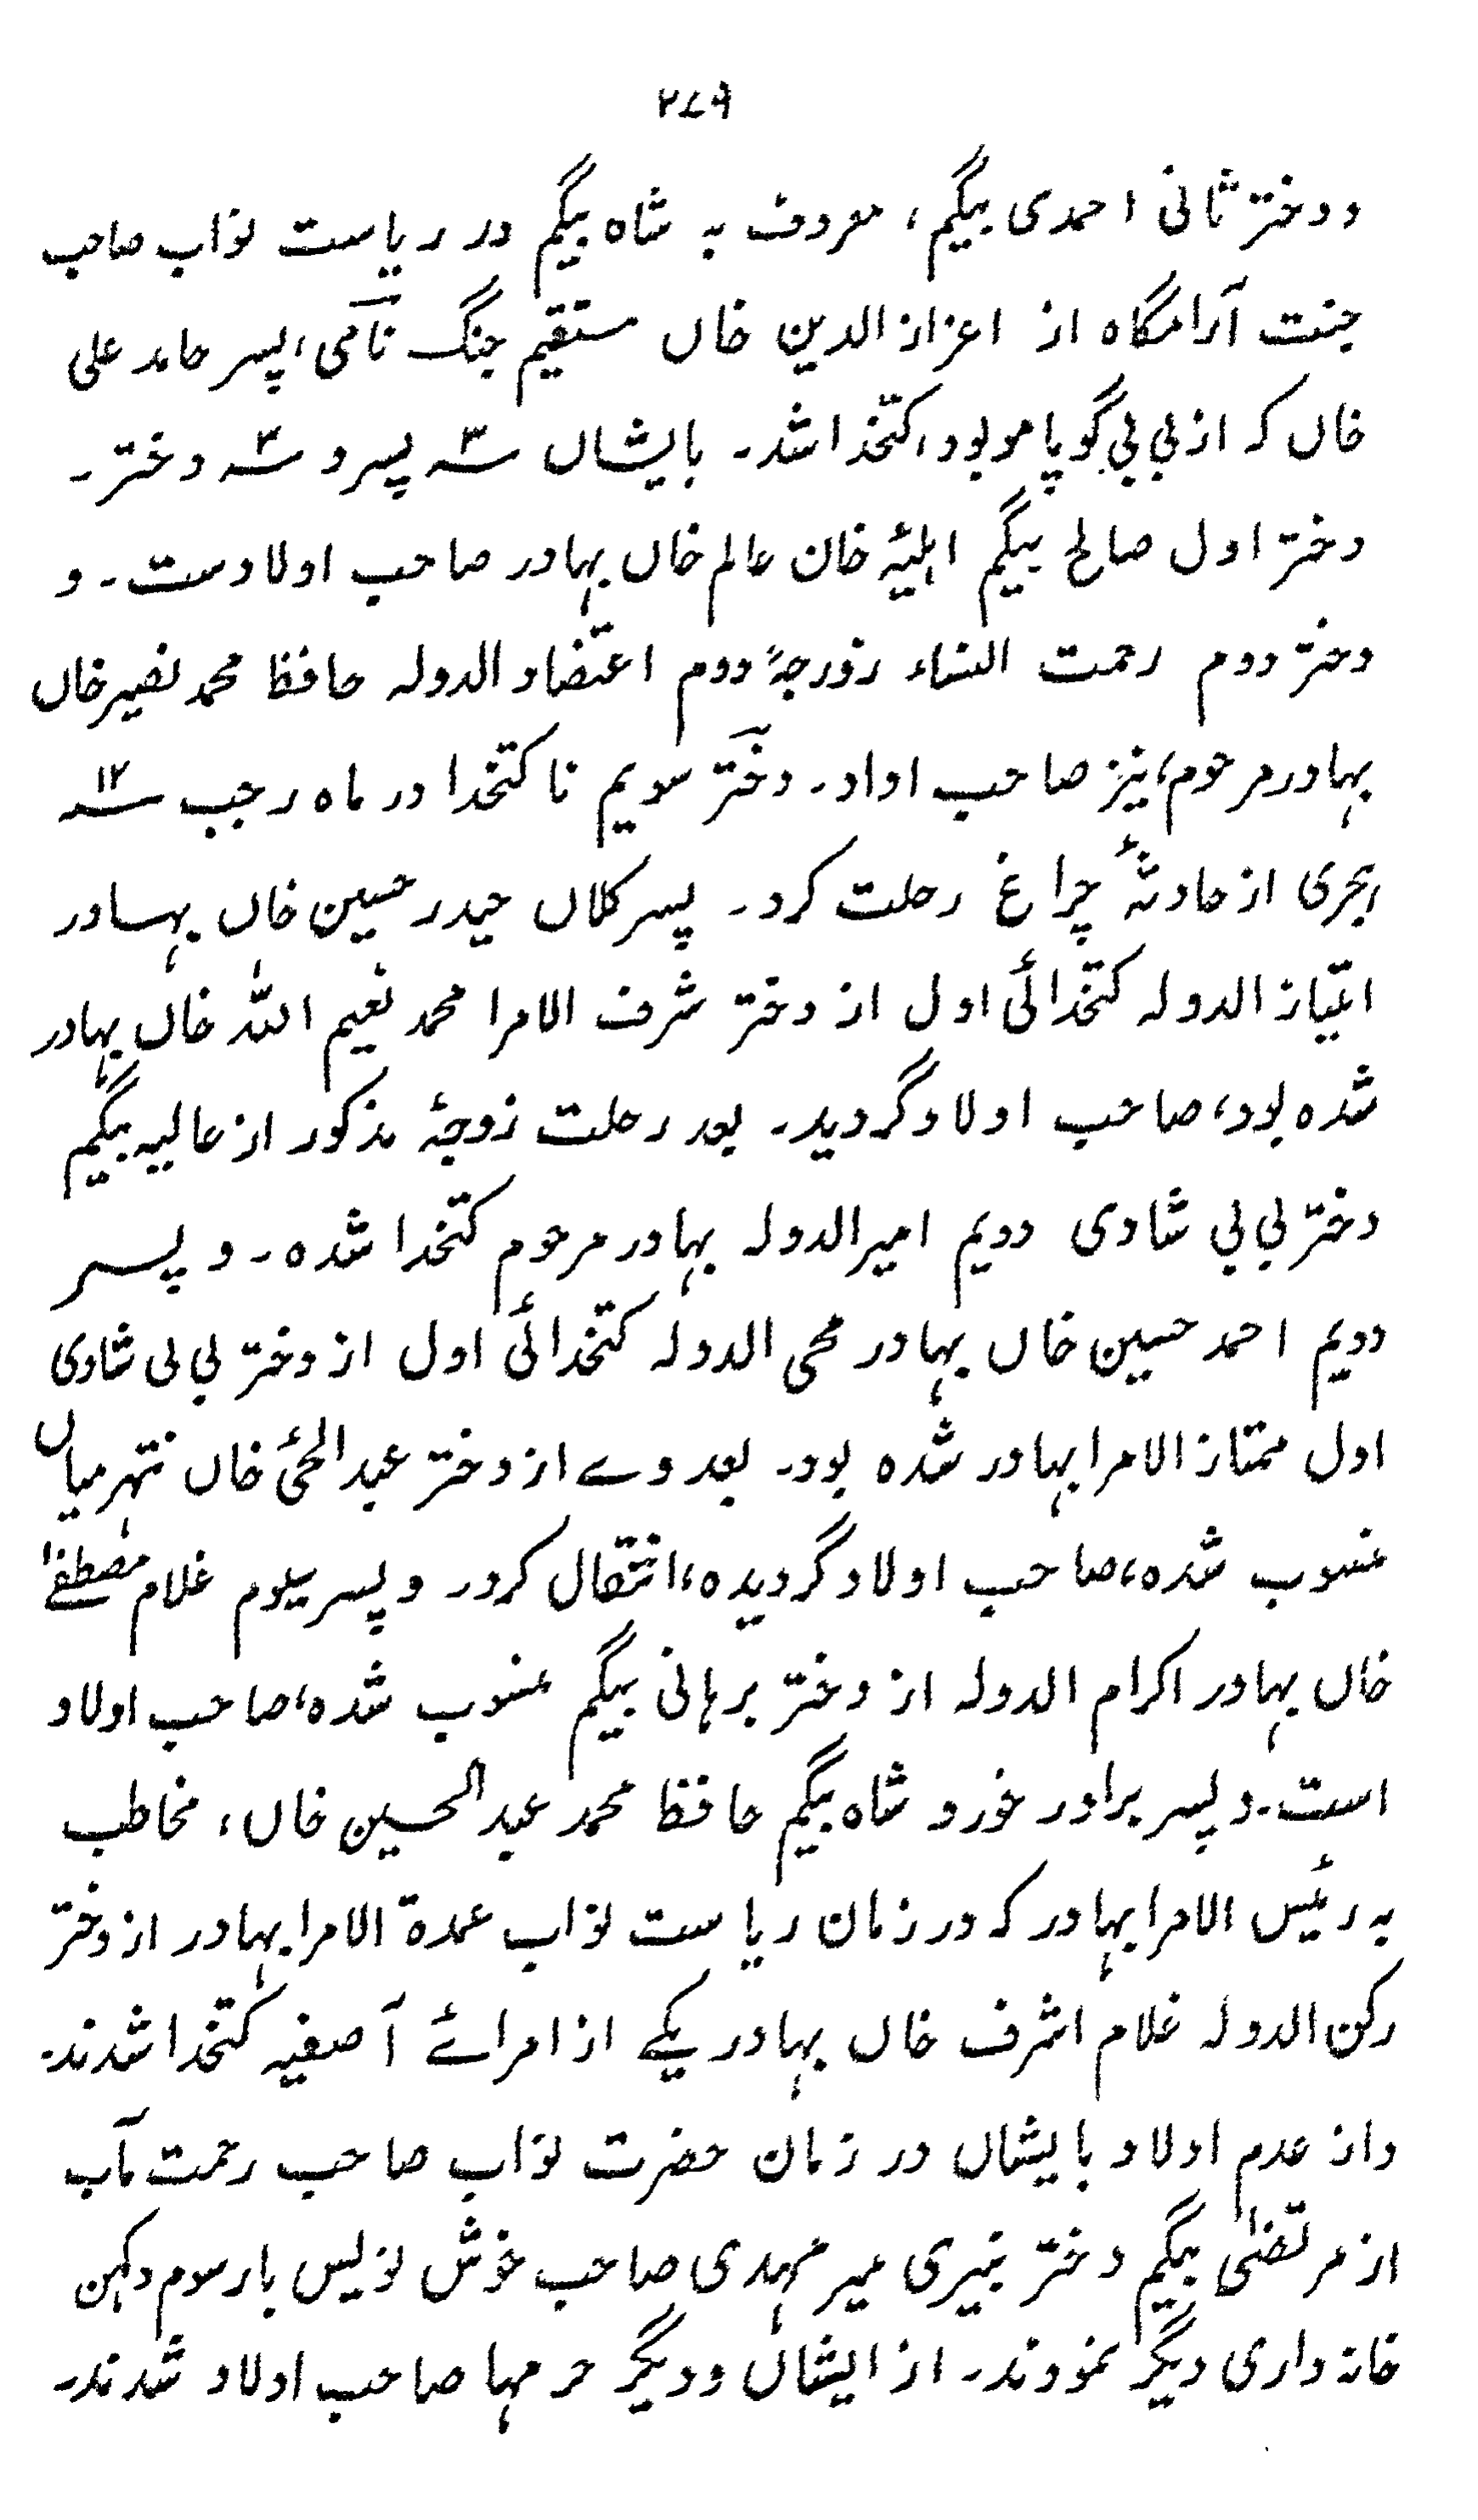 ۲۷۹
و دختر ثانی احمدی بیگم، معروف به شاه بیگم در ریاست نواب صاحب
جنت آرامگاه از اعزاز الدین خاں مستقیم جنگ نامی، پسر حامد علی
خاں که از بی بی گوپامو بود، کتخدا شد۔ بایشاں سه ۳ پسر و سه ۳ دختر۔
دختر اول صالح بیگم اہلیۂ خان عالم خاں بہادر صاحب اولادست۔ و
دختر دوم رحمت النساء زوجۂ دوم اعتضاد الدوله حافظ محمد نصیر خاں
بہادر مرحوم، نیز صاحب اولاد۔ دختر سویم ناکتخدا در ماه رجب سنه ۱۲
ہجری از حادثۂ چراغ رحلت کرد۔ پسر کلاں حیدر حسین خاں بہادر
امتیاز الدوله کتخدائی اول از دختر شرف الامرا محمد نعیم اللہ خاں بہادر
شده بود، صاحب اولاد گردید۔ بعد رحلت زوجۂ مذکور از عالیہ بیگم
دختر بی بی شادی دویم امیر الدوله بہادر مرحوم کتخدا شده۔ و پسر
دویم احمد حسین خاں بہادر محی الدوله کتخدائی اول از دختر بی بی شادی
اول ممتاز الامرا بہادر شده بود۔ بعد وے از دختر عبد الحئی خاں نتهرمیاں
منسوب شده، صاحب اولاد گردیده، انتقال کرد۔ و پسر سیوم غلام مصطفےٰ
خاں بہادر اکرام الدوله از دختر برہانی بیگم منسوب شده، صاحب اولاد
است۔ و پسر برادر خورد شاه بیگم حافظ محمد عبد الحسین خاں، مخاطب
به رئیس الامرا بہادر که در زمان ریاست نواب عمدة الامرا بہادر از دختر
رکن الدوله غلام اشرف خاں بہادر یکے از امرائے آصفیہ کتخدا شدند۔
و از عدم اولاد بایشاں در زمان حضرت نواب صاحب رحمت مآب
از مرتضیٰ بیگم دختر میر مہدی صاحب خوش نویس با رسوم دکہن
خانه داری دیگر نمودند۔ از ایشاں و دیگر حرمہا صاحب اولاد شدند۔